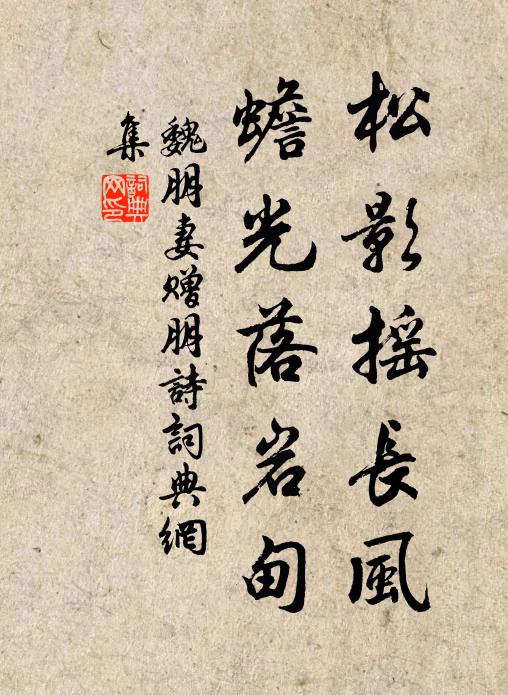 松影摇長風
蟾光落岩甸
魏朋妻贈朋詩詞典網
集
詞典
网印